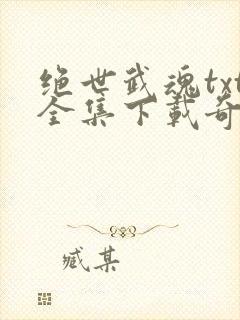 绝世武魂txt
全集下载奇
臧某